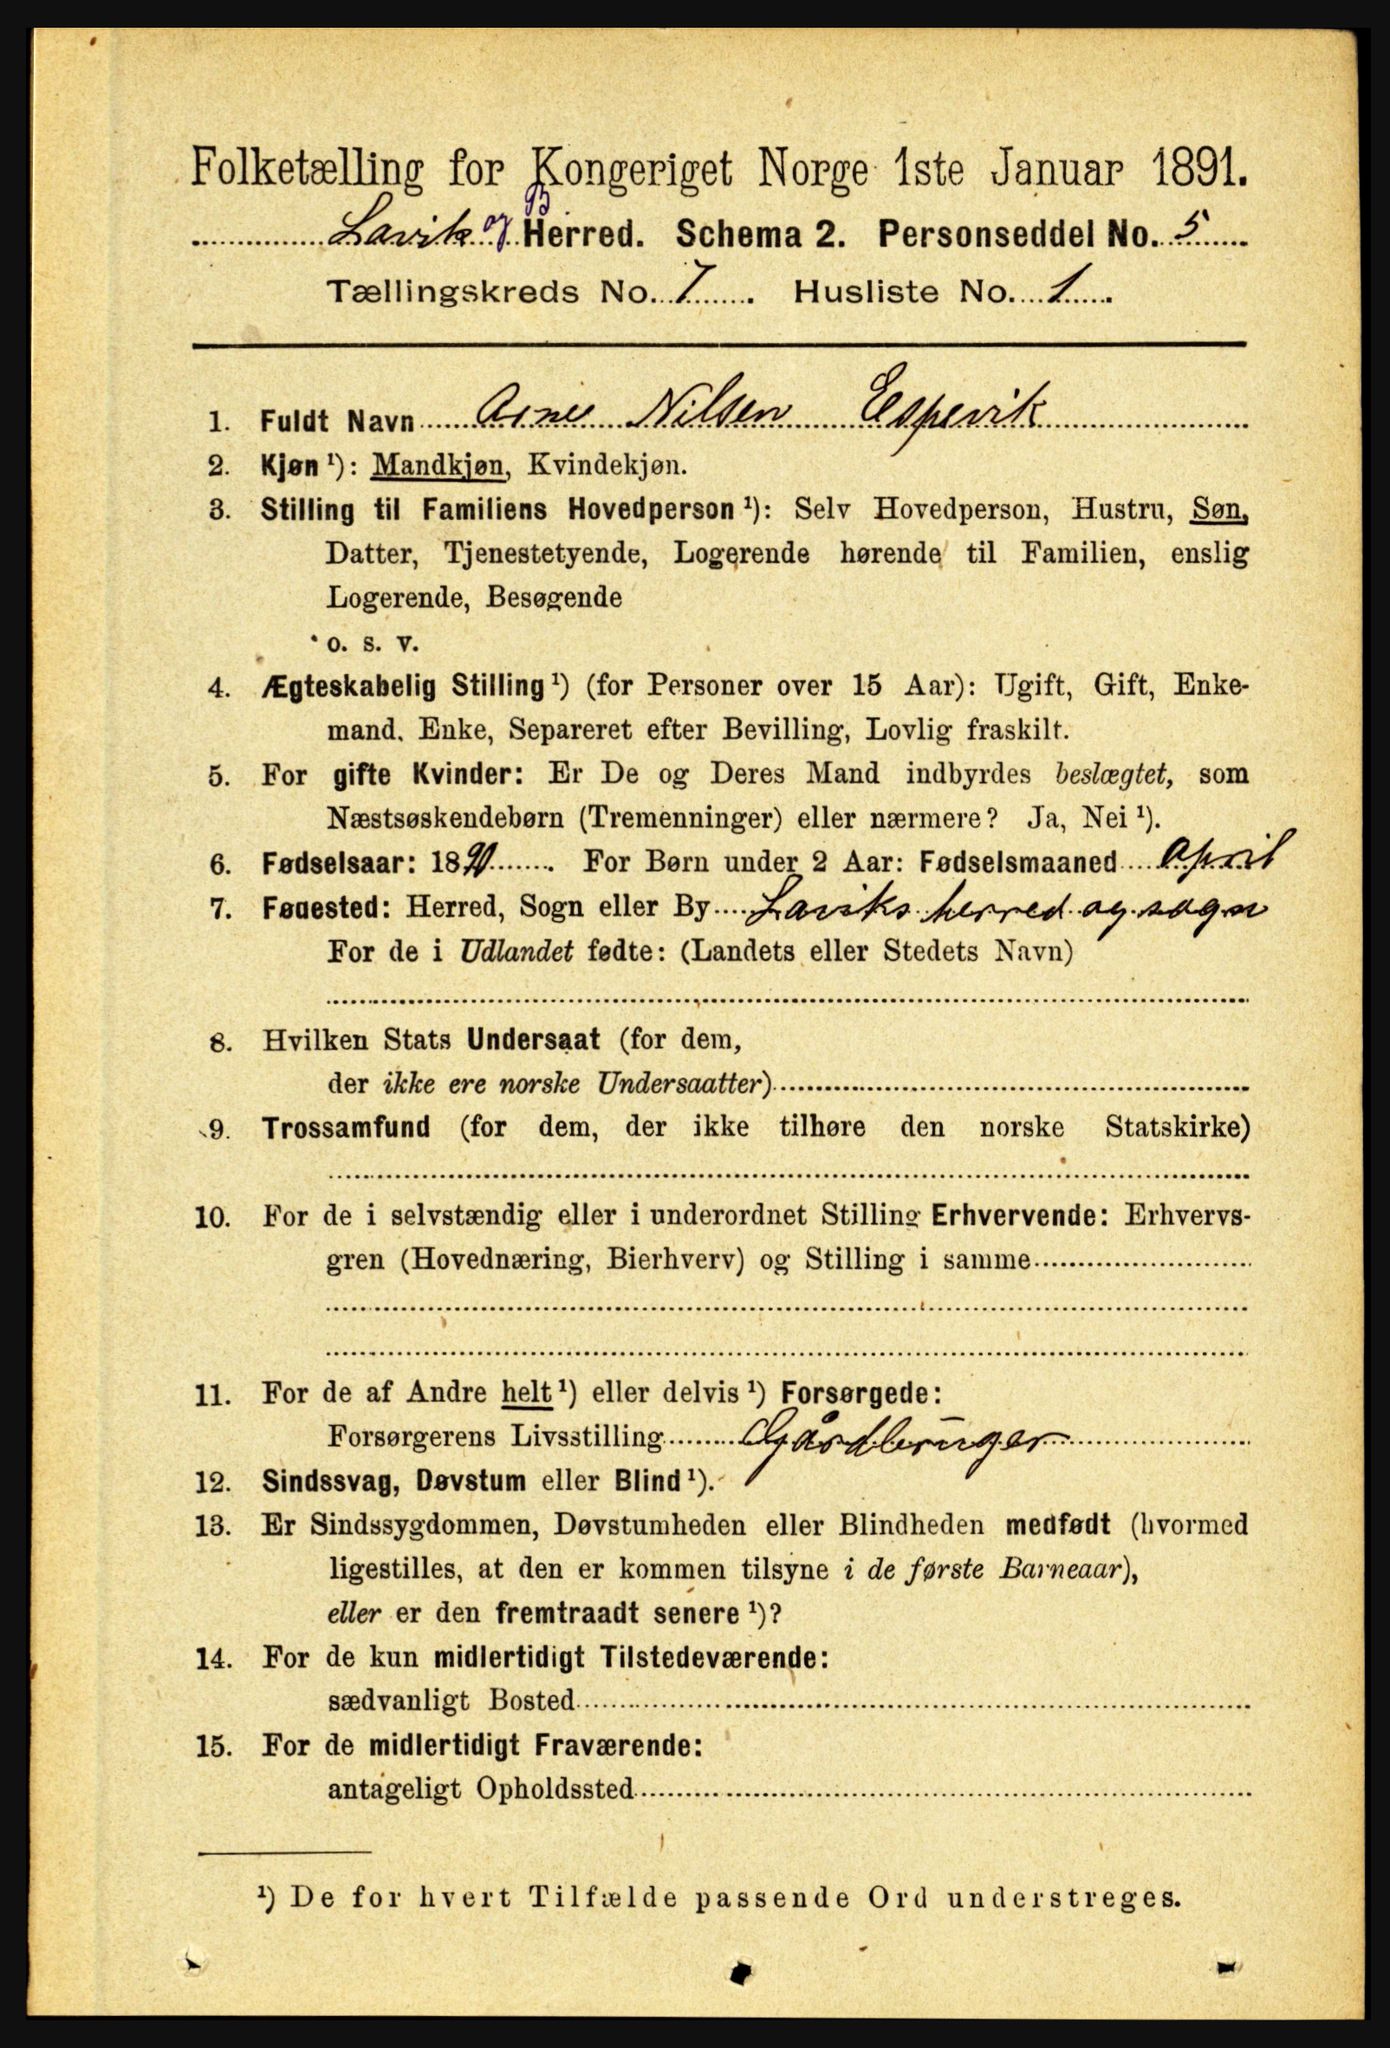 Folketælling for Kongeriget Norge 1ste Januar 1891.
Lavik og B Herred. Schema 2. Personseddel No. 5
Tællingskreds No. 7. Husliste No. 1.
1. Fuldt Navn Arne Nilsen Espevik
2. Kjøn ¹): Mandkjøn, Kvindekjøn.
3. Stilling til Familiens Hovedperson ¹): Selv Hovedperson, Hustru, Søn,
Datter, Tjenestetyende, Logerende hørende til Familien, enslig
Logerende, Besøgende
o. s. v.
4. Ægteskabelig Stilling ¹) (for Personer over 15 Aar): Ugift, Gift, Enke-
mand, Enke, Separeret efter Bevilling, Lovlig fraskilt.
5. For gifte Kvinder: Er De og Deres Mand indbyrdes beslægtet, som
Næstsøskendebørn (Tremenninger) eller nærmere? Ja, Nei ¹).
6. Fødselsaar: 1890. For Børn under 2 Aar: Fødselsmaaned April
7. Fødested: Herred, Sogn eller By Laviks herred og sogn
For de i Udlandet fødte: (Landets eller Stedets Navn)
8. Hvilken Stats Undersaat (for dem,
der ikke ere norske Undersaatter)
9. Trossamfund (for dem, der ikke tilhøre den norske Statskirke)
10. For de i selvstændig eller i underordnet Stilling Erhvervende: Erhvervs-
gren (Hovednæring, Bierhverv) og Stilling i samme
11. For de af Andre helt ¹) eller delvis ¹) Forsørgede:
Forsørgerens Livsstilling Gårdbruger
12. Sindssvag, Døvstum eller Blind ¹).
13. Er Sindssygdommen, Døvstumheden eller Blindheden medfødt (hvormed
ligestilles, at den er kommen tilsyne i de første Barneaar),
eller er den fremtraadt senere ¹)?
14. For de kun midlertidigt Tilstedeværende:
sædvanligt Bosted
15. For de midlertidigt Fraværende:
antageligt Opholdssted
¹) De for hvert Tilfælde passende Ord understreges.